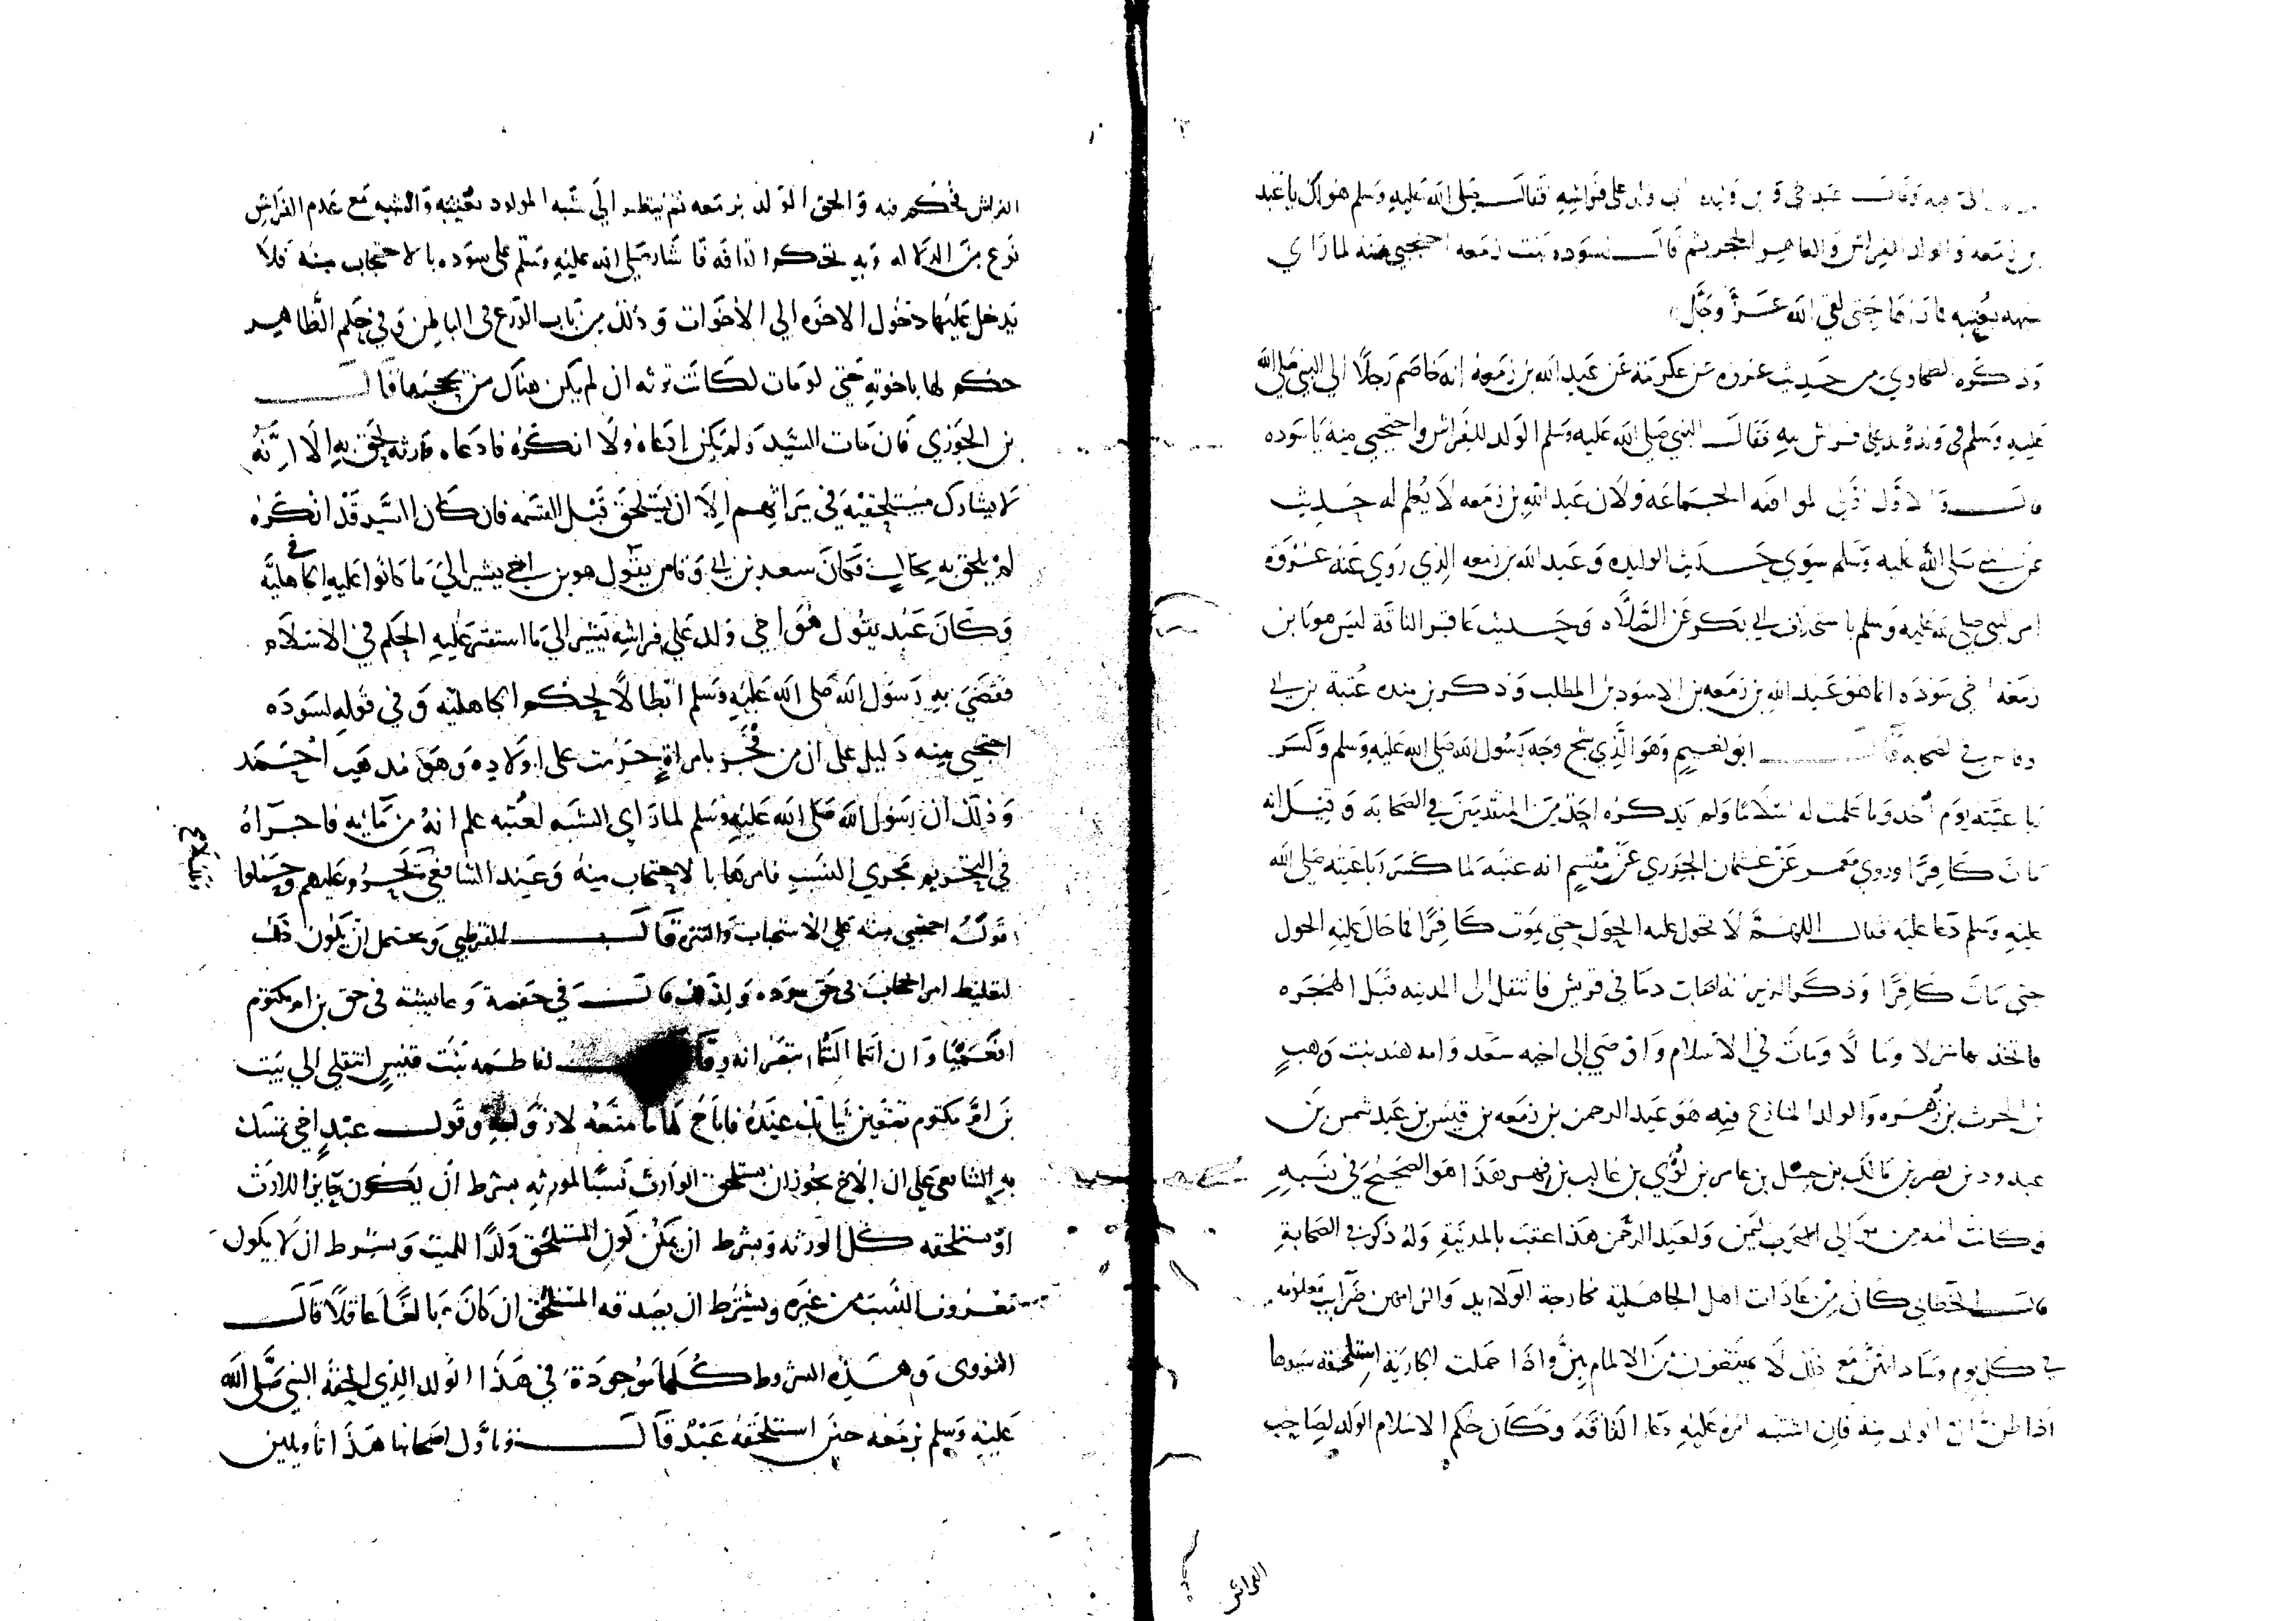 وقال عبد اخي و بن وليده ابي ولد على فراشه فقال صلى الله عليه وسلم هو لك يا عبد
بن زمعه والولد للفراش وللعاهر الحجر ثم قال لسوده بنت زمعه احتجبي منه لما راي
شبهه بعتبه فما رآها حتى لقي الله عز وجل
وذكره الطحاوي من حديث عن عكرمة عن عبد الله بن زمعه انه خاصم رجلا الي النبي صلى الله
عليه وسلم في ولد ولد على فراش ابيه فقال النبي صلى الله عليه وسلم الولد للفراش واحتجبي منه يا سوده
قال والاول اولى لموافقه الجماعه ولان عبد الله بن زمعه لا يعلم له حديث
عن النبي صلى الله عليه وسلم سوى حديث الوليده وعبد الله بن زمعه الذي روي عنه عروة
امر النبي صلى الله عليه وسلم باستخلاف ابي بكر عن الصلاه وحديث عاقر الناقة ليس هو بابن
زمعه اخي سوده انما هو عبد الله بن زمعه بن الاسود بن المطلب وذكر بن منده عتبة بن ابي
وقاص في الصحابه قال ابو نعيم وهو الذي شج وجه رسول الله صلى الله عليه وسلم وكسر
رباعيته يوم احد وما علمت له اسلاما ولم يذكره احد من المتقدمين في الصحابه وقيل انه
مات كافرا وروي معمر عن عثمان الجزري عن مقسم انه عتبه لما كسر رباعيته صلى الله
عليه وسلم دعا عليه فقال اللهم لا تحول عليه الحول حتى يموت كافرا فما حال عليه الحول
حتى مات كافرا وذكر الزبير انه اصاب دما في قريش فانتقل الى المدينه قبل الهجره
فاتخذ بها منزلا ومالا ومات في الاسلام واوصي إلى اخيه سعد وامه هند بنت وهب
بن الحرث بن زهره والولد المنازع فيه هو عبد الرحمن بن زمعه بن قيس بن عبد شمس بن
عبدود بن نصر بن مالك بن حسل بن عامر بن لؤي بن غالب بن فهر هذا هو الصحيح في نسبه
وكانت امه من موالي اليمن ولعبد الرحمن هذا عقب بالمدينة وله ذكر في الصحابة
قال الخطابي كان من عادات اهل الجاهلية مخارجة الولايد والزامهن ضرايب معلومه
في كل يوم وساداتهن مع ذلك لا يمتنعون من الالمام بهن واذا حملت الجارية استلحقه سيدها
اذا ظن ان الولد منه فان اشتبه امره عليه دعا القافة وكان حكم الاسلام الولد لصاحب
الفراش
الفراش فحكم فيه والحق الولد بزمعه ثم نظر الي شبه المولود بعتبه والشبه مع عدم الفراش
نوع من الدلاله وبه تحكم القافه فاشار صلى الله عليه وسلم على سوده بالاحتجاب منه فلا
يدخل عليها دخول الاخوه الي الاخوات وذلك من باب الورع في الباطن وفي حكم الظاهر
حكم لها باخوته حتى لو مات لكانت ترثه ان لم يكن هناك من يحجبها قال
بن الجوزي فان مات السيد ولم يكن ادعاه ولا انكره فادعاه ورثته لحق به الا انه
لا يشارك مستلحقيه في ميراثهم الا ان يستلحق قبل القسمه فان كان السيد قد انكره
لم يلحق به بحال فكان سعد بن ابي وقاص يقول هو بن اخي يشير الي ما كانوا عليه في الجاهليه
وكان عبد يقول هو اخي ولد على فراشه يشير الي ما استقر عليه الحكم في الاسلام
فقضي به رسول الله صلى الله عليه وسلم ابطالا لحكم الجاهليه وفي قوله لسوده
احتجبي منه دليل على ان من فجر بامراة حرمت على اولاده وهو مذهب احمد
وذلك ان رسول الله صلى الله عليه وسلم لما راي الشبه لعتبه علم انه من مايه فاجراه
في التحريم مجري النسب فامرها بالاحتجاب منه وعند الشافعي لا تحرم عليهم وحملوا
قوله احتجبي منه على الاستحباب والتنزه قال القرطبي ويحتمل ان يكون ذلك
لتغليظ امر الحجاب في حق سوده ولذلك قال في حفصة وعائشة في حق بن ام مكتوم
افعمياوان انتما الستما تبصرانه وقال لفاطمه بنت قيس انتقلي الي بيت
بن ام مكتوم تضعين ثيابك عنده فاباح لها ما منعه لازواجه وقول عبد اخي تمسك
به الشافعي على ان الاخ يجوز ان يستلحق الوارث نسبا لمورثه بشرط ان يكون حايزا للارث
او يستلحقه كل الورثه وبشرط ان يمكن كون المستلحق ولدا للميت وبشرط ان لا يكون
معروف النسب من غيره وبشرط ان يصدقه المستلحق ان كان بالغا عاقلا قال
النووي وهذه الشروط كلها موجودة في هذا الولد الذي الحقه النبي صلى الله
عليه وسلم بزمعه حين استلحقه عبد قال وتاول اصحابنا هذا تاويلين